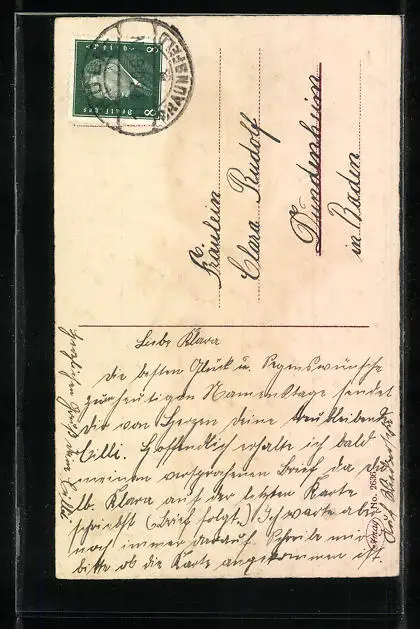 Fräulein
Clara Rudolf
Dundenheim
in Baden
Liebe Klara
die besten Glück u. Segenswünsche
zum heutigen Namenstage sendet
dir von Herzen deine treubleibende
Cilli. Hoffentlich erhalte ich bald
meinen versprochenen Brief da du
lb. Klara auf der letzten Karte
schriebst (Brief folgt.) Ich warte aber
noch immer darauf. Schreibe mir
bitte ob die Karte angekommen ist.
No. 2636
8 8